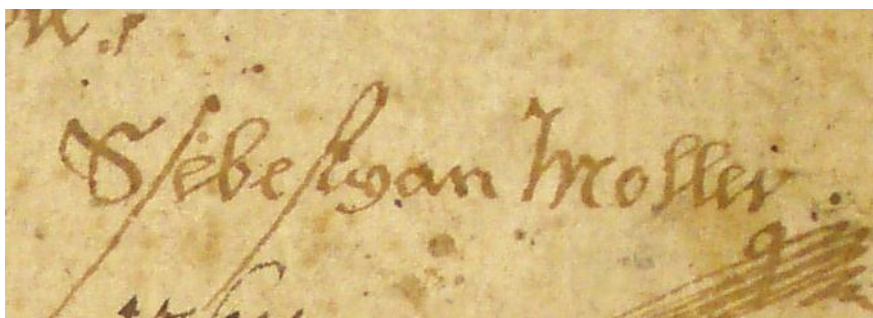 Ssebestyan Moller